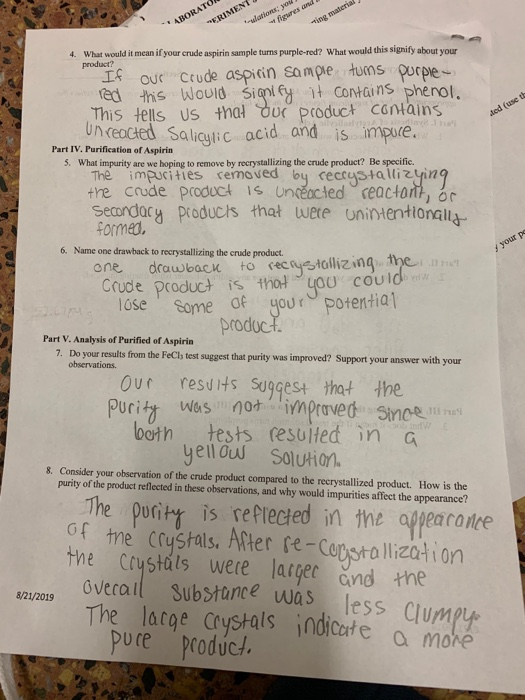 ABORATO
ERIMENT
figures and
ring material
4. What would it mean if your crude aspirin sample turns purple-red? What would this signify about your
product?
If our crude aspirin sample turns purple-
red this would signify it contains phenol.
This tells us that our product contains
Unreacted Salicylic acid and is impure.
Part IV. Purification of Aspirin
5. What impurity are we hoping to remove by recrystallizing the crude product? Be specific.
The impurities removed by recrystallizying
the crude product is unreacted reactant, or
Secondary products that were unintentionally
formed.
6. Name one drawback to recrystallizing the crude product.
one drawback to recrystallizing the
Crude product is that you could
lose some of your potential
product.
Part V. Analysis of Purified of Aspirin
7. Do your results from the FeCl3 test suggest that purity was improved? Support your answer with your
observations.
Our results suggest that the
purity was not improved since
both tests resulted in a
yellow solution.
8. Consider your observation of the crude product compared to the recrystallized product. How is the
purity of the product reflected in these observations, and why would impurities affect the appearance?
The purity is reflected in the appearance
of the crystals. After re-crystallization
the crystals were larger and the
overall substance was less clumpy.
The large crystals indicate a more
pure product.
8/21/2019
your